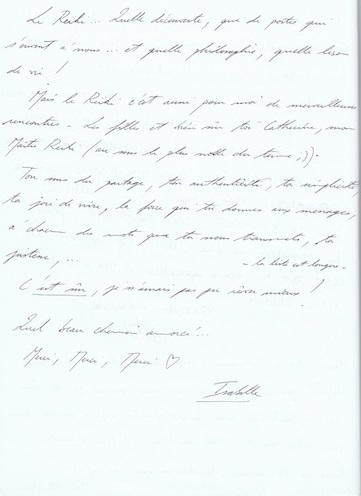 Le Reiki... Quelle découverte, que de portes qui
s'ouvrent à nous... et quelle philosophie, quelle leçon
de vie !
Mais le Reiki c'est aussi pour moi de merveilleuses
rencontres - Les filles et bien sûr toi Catherine, mon
Maître Reiki (au sens le plus noble du terme ;)).
Ton sens du partage, ton authenticité, ta simplicité,
ta joie de vivre, la force que tu donnes aux messages,
à chacun des mots que tu nous transmets, ta
justesse, ...
- la liste est longue -
C'est sûr, je n'aurais pas pu rêver mieux !
Quel beau chemin amorcé...
Merci, Merci, Merci ♡
Isabelle